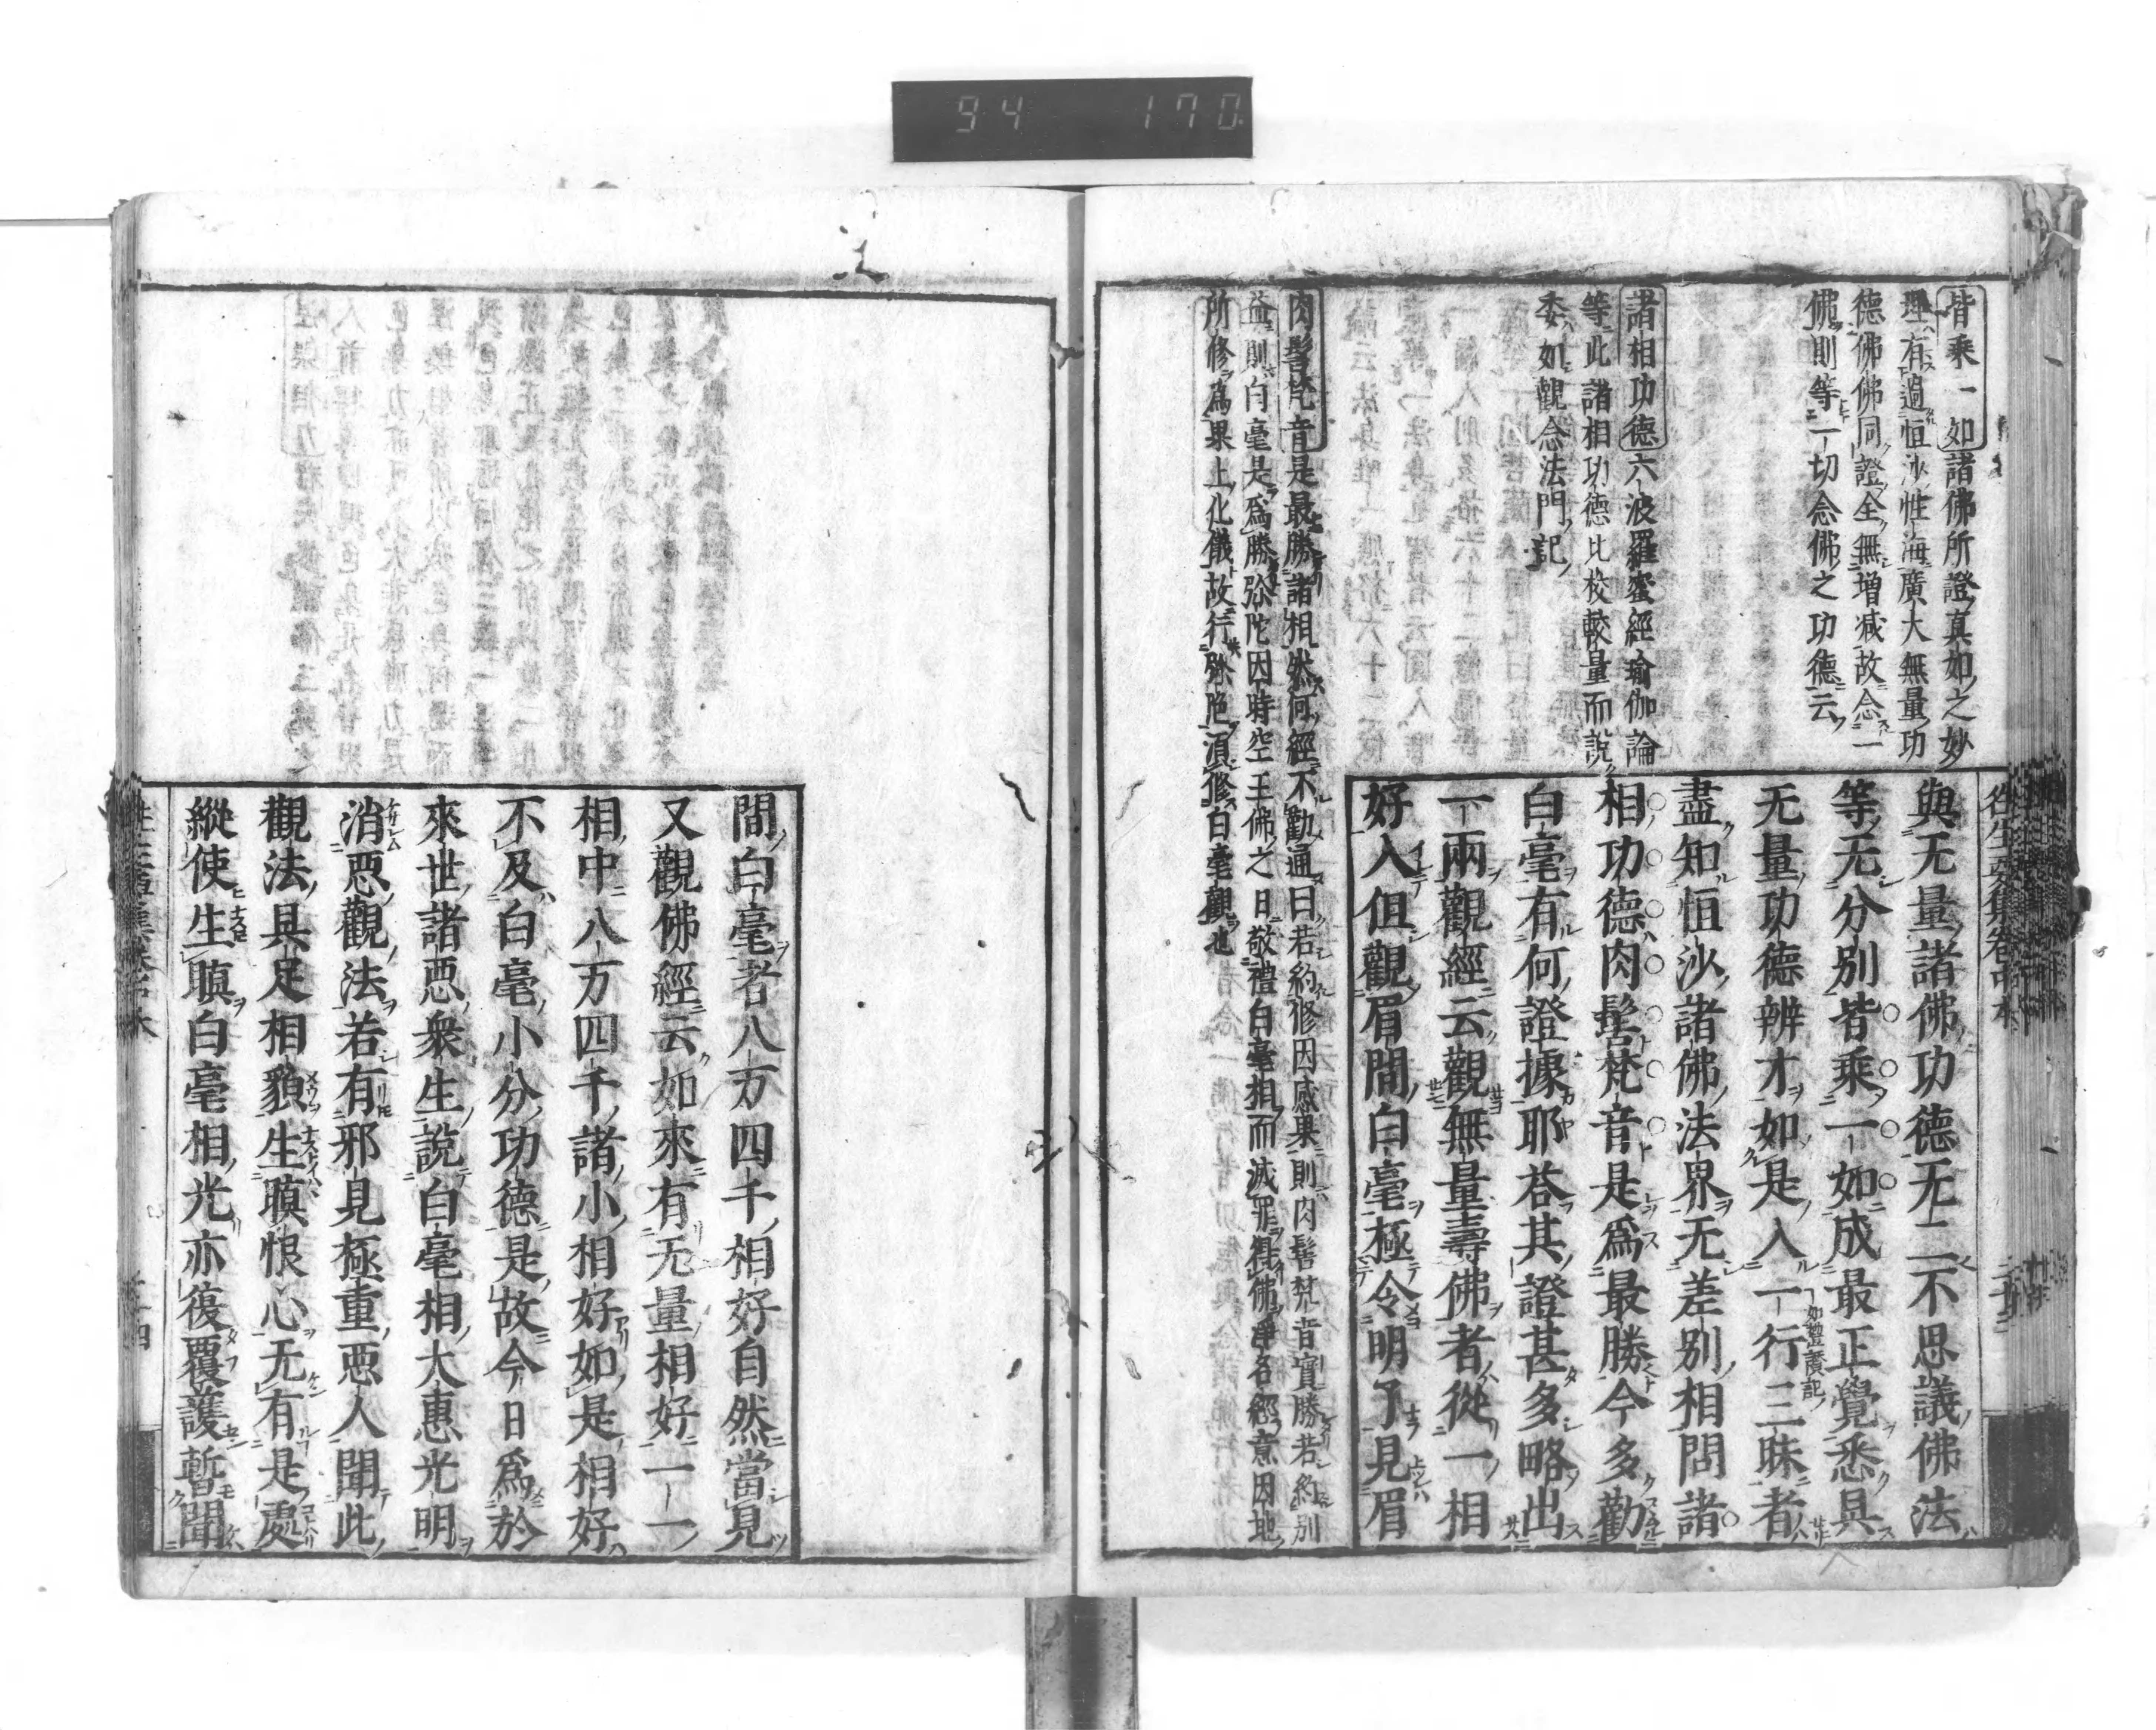 94 170
皆乘一如諸佛所證真如之妙
理有過恒沙性海廣大無量功
德佛佛同證全無增減故念一
佛則等一切念佛之功德云
諸相功德六波羅蜜經瑜伽論
等此諸相功德比校較量而說
委如觀念法門記
肉髻梵音是最勝諸相然何經不勸通曰若約修因感果則肉髻梵音實勝若約別
益則白毫是爲勝弥陀因時空王佛之日敬禮白毫相而滅罪得佛淨名經意因地
所修爲果上化儀故行弥陀須修白毫觀也
往生要集卷中本
與无量諸佛功德无二不思議佛法
等无分別皆乘一如成最正覺悉具
无量功德辨才如是入一行三昧者
如禮讚記
盡知恒沙諸佛法界无差別相問諸
相功德肉髻梵音是爲最勝今多勸
白毫有何證據耶荅其證甚多略出
一兩觀經云觀無量壽佛者從一相
好入但觀眉間白毫極令明了見眉
間白毫者八万四千相好自然當見
又觀佛經云如來有无量相好一一
相中八万四千諸小相好如是相好
不及白毫小分功德是故今日爲於
來世諸惡衆生說白毫相大惠光明
消惡觀法若有邪見極重惡人聞此
觀法具足相貌生瞋恨心无有是處
縱使生瞋白毫相光亦復覆護暫聞